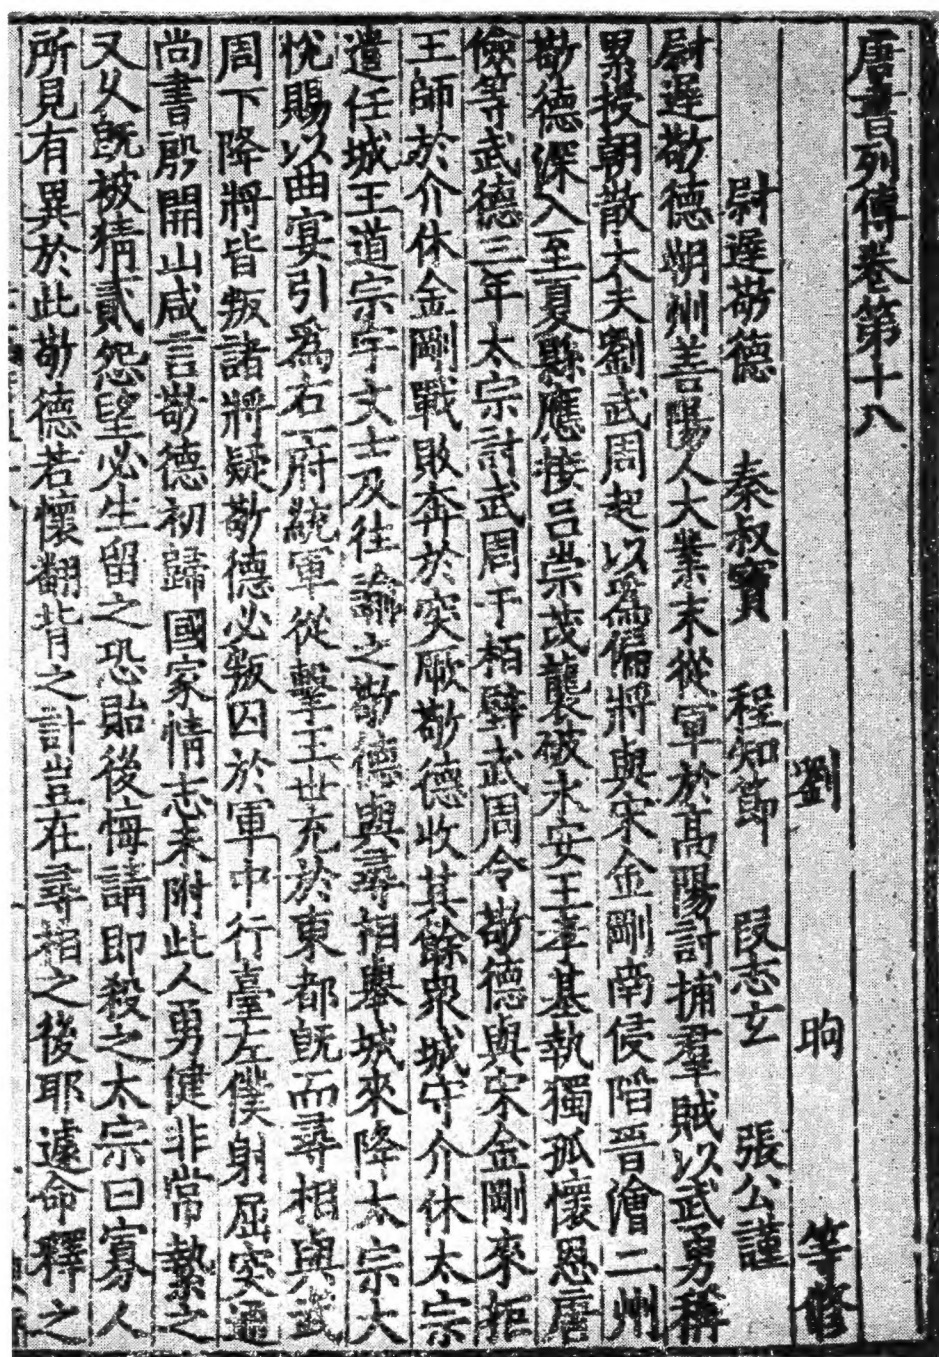 唐書列傳卷第十八
劉　昫　等修
尉遲敬德　秦叔寶　程知節　段志玄　張公謹
尉遲敬德朔州善陽人大業末從軍於高陽討捕羣賊以武勇稱
累授朝散大夫劉武周起以爲偏將與宋金剛南侵陷晉澮二州
敬德深入至夏縣應接呂崇茂襲破永安王孝基執獨孤懷恩唐
儉等武德三年太宗討武周于栢壁武周令敬德與宋金剛來拒
王師於介休金剛戰敗奔於突厥敬德收其餘衆城守介休太宗
遣任城王道宗宇文士及往諭之敬德與尋相舉城來降太宗大
悅賜以曲宴引爲右一府統軍從擊王世充於東都旣而尋相與武
周下降將皆叛諸將疑敬德必叛囚於軍中行臺左僕射屈突通
尚書殷開山咸言敬德初歸國家情志未附此人勇健非常縶之
又久旣被猜貳怨望必生留之恐貽後悔請即殺之太宗曰寡人
所見有異於此敬德若懷翻背之計豈在尋相之後耶遽命釋之